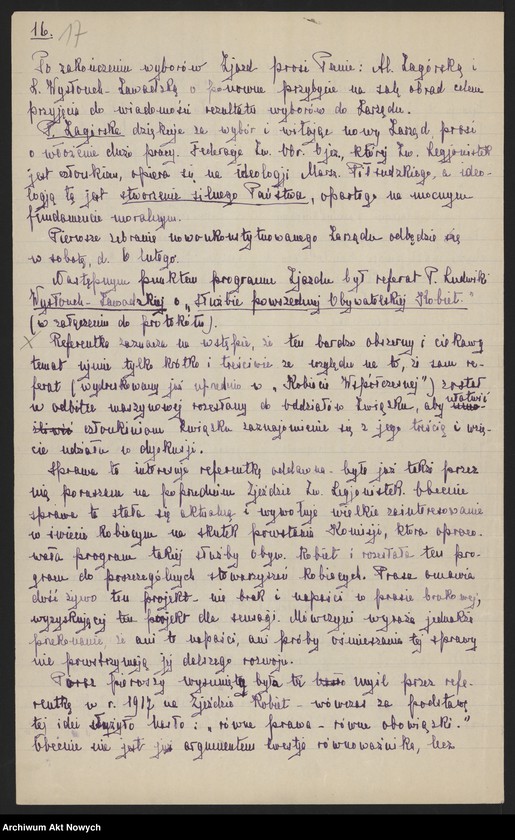 16. 17
Po zakończeniu wyborów Zjazd prosi Panie: Al. Zagórską i
L. Wysłouch-Zawadzką o ponowne przybycie na salę obrad celem
przyjęcia do wiadomości rezultatu wyborów do Zarządu.
P. Zagórska dziękuje za wybór i witając nowy Zarząd prosi
o włożenie dużo pracy. Federacja Zw. Obr. Ojcz., której Zw. Legjonistek
jest członkiem, opiera się na ideologji Marsz. Piłsudzkiego, a ideo-
logją tą jest stworzenie silnego Państwa, opartego na mocnym
fundamencie moralnym.
Pierwsze zebranie nowoukonstytuowanego Zarządu odbędzie się
w sobotę, d. 6 lutego.
Następnym punktem programu Zjazdu był referat P. Ludwiki
Wysłouch-Zawadzkiej o "Służbie powszechnej Obywatelskiej Kobiet."
(w załączeniu do protokółu).
x Referentka zaznacza na wstępie, że ten bardzo obszerny i ciekawy
temat ujmie tylko krótko i treściwie ze względu na to, że sam re-
ferat (wydrukowany już uprzednio w "Kobiecie Współczesnej") został
w odbitce maszynowej rozesłany do oddziałów Związku, aby ułatwić
członkiniom Związku zaznajomienie się z jego treścią i wzię-
cie udziału w dyskusji.
Sprawa ta interesuje referentkę oddawna - było już także przez
nią poruszana na poprzednim Zjeździe Zw. Legjonistek. Obecnie
sprawa ta stała się aktualną i wywołuje wielkie zainteresowanie
w świecie kobiecym na skutek powstania Komisji, która opraco-
wała program takiej służby obyw. Kobiet i rozesłała ten pro-
gram do poszczególnych stowarzyszeń kobiecych. Prasa omawia
dość żywo ten projekt - nie brak i napaści w prasie brukowej,
wyzyskującej ten projekt dla sensacji. Mówczyni wyraża jednakże
przekonanie, że ani te napaści, ani próby ośmieszania tej sprawy
nie powstrzymają jej dalszego rozwoju.
Poraz pierwszy wysuniętą była ta myśl przez refe-
rentkę w r. 1917 na Zjeździe Kobiet - wówczas za podstawę
tej idei służyło hasło: "równe prawa - równe obowiązki."
Obecnie nie jest już argumentem kwestja równoważnika, lecz
Archiwum Akt Nowych